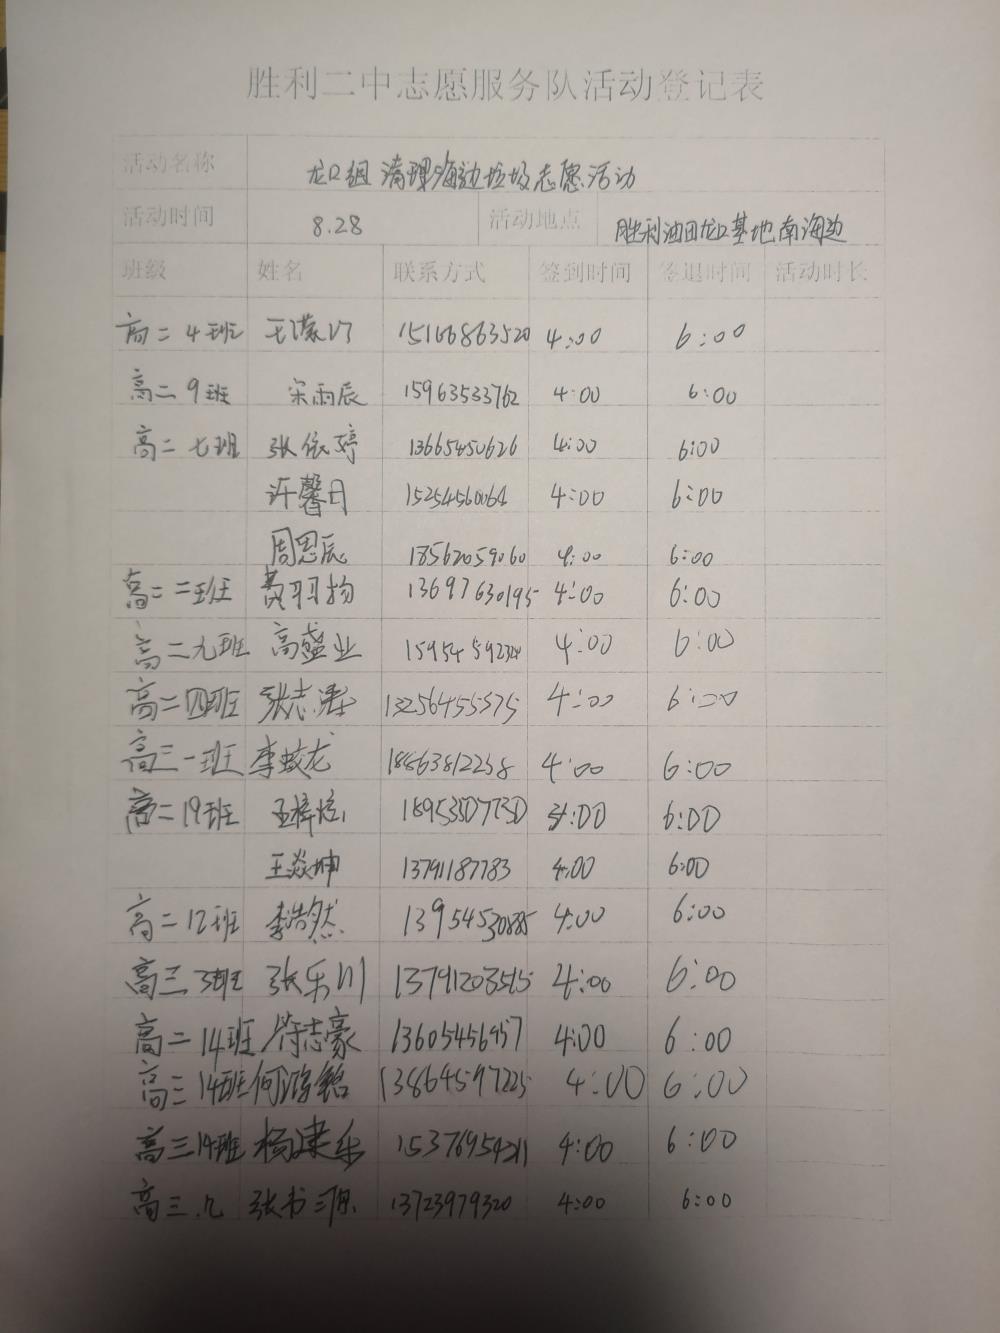 胜利二中志愿服务队活动登记表
活动名称 龙口组 清理海边垃圾志愿活动
活动时间 8.28 活动地点 胜利油田龙口基地南海边
班级 姓名 联系方式 签到时间 签退时间 活动时长
高二4班 15166863520 4:00 6:00
高二9班 宋雨辰 15963533762 4:00 6:00
高二七班 张依婷 13665450626 4:00 6:00
许馨月 15254560064 4:00 6:00
周恩辰 18562059060 4:00 6:00
高二二班 黄羽扬 13697630195 4:00 6:00
高二九班 高盛业 4:00 6:00
高二四班 张志涛 13256455575 4:00 6:00
高三一班 李蛟龙 18863812258 4:00 6:00
高二19班 4:00 6:00
王焱坤 13791187783 4:00 6:00
高二12班 李浩然 13954530885 4:00 6:00
高三3班 张乐川 13791208515 4:00 6:00
高二14班 符志豪 13605456957 4:00 6:00
高三14班 何鸿铭 13864597225 4:00 6:00
高三14班 杨建乐 15376954211 4:00 6:00
高三.九 张书源 13723979320 4:00 6:00